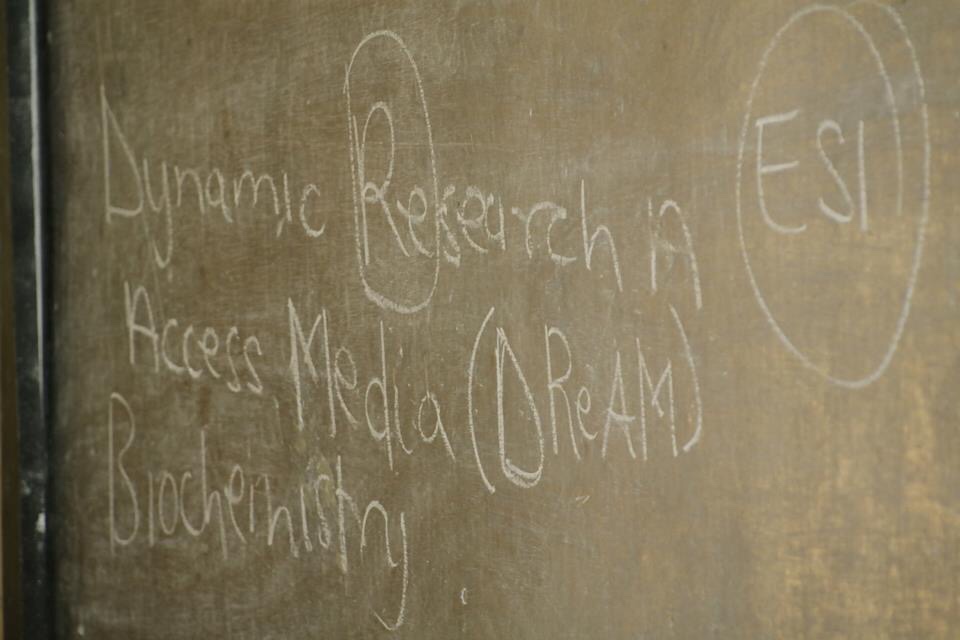 Dynamic Research in
Access Media (DReAM)
Biochemistry
ESI